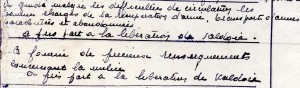 a guidé malgré les difficultés de circulation les
charges de la récupération d'arme, transport d'armes
et
a pris part à la libération de Valdoie.
A fourni de précieux renseignements
concernant la milice
a pris part à la libération de Valdoie